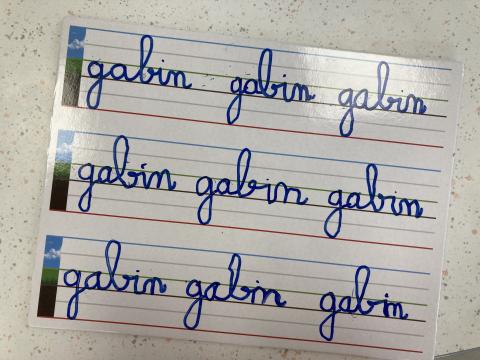 gabin gabin gabin
gabin gabin gabin
gabin gabin gabin